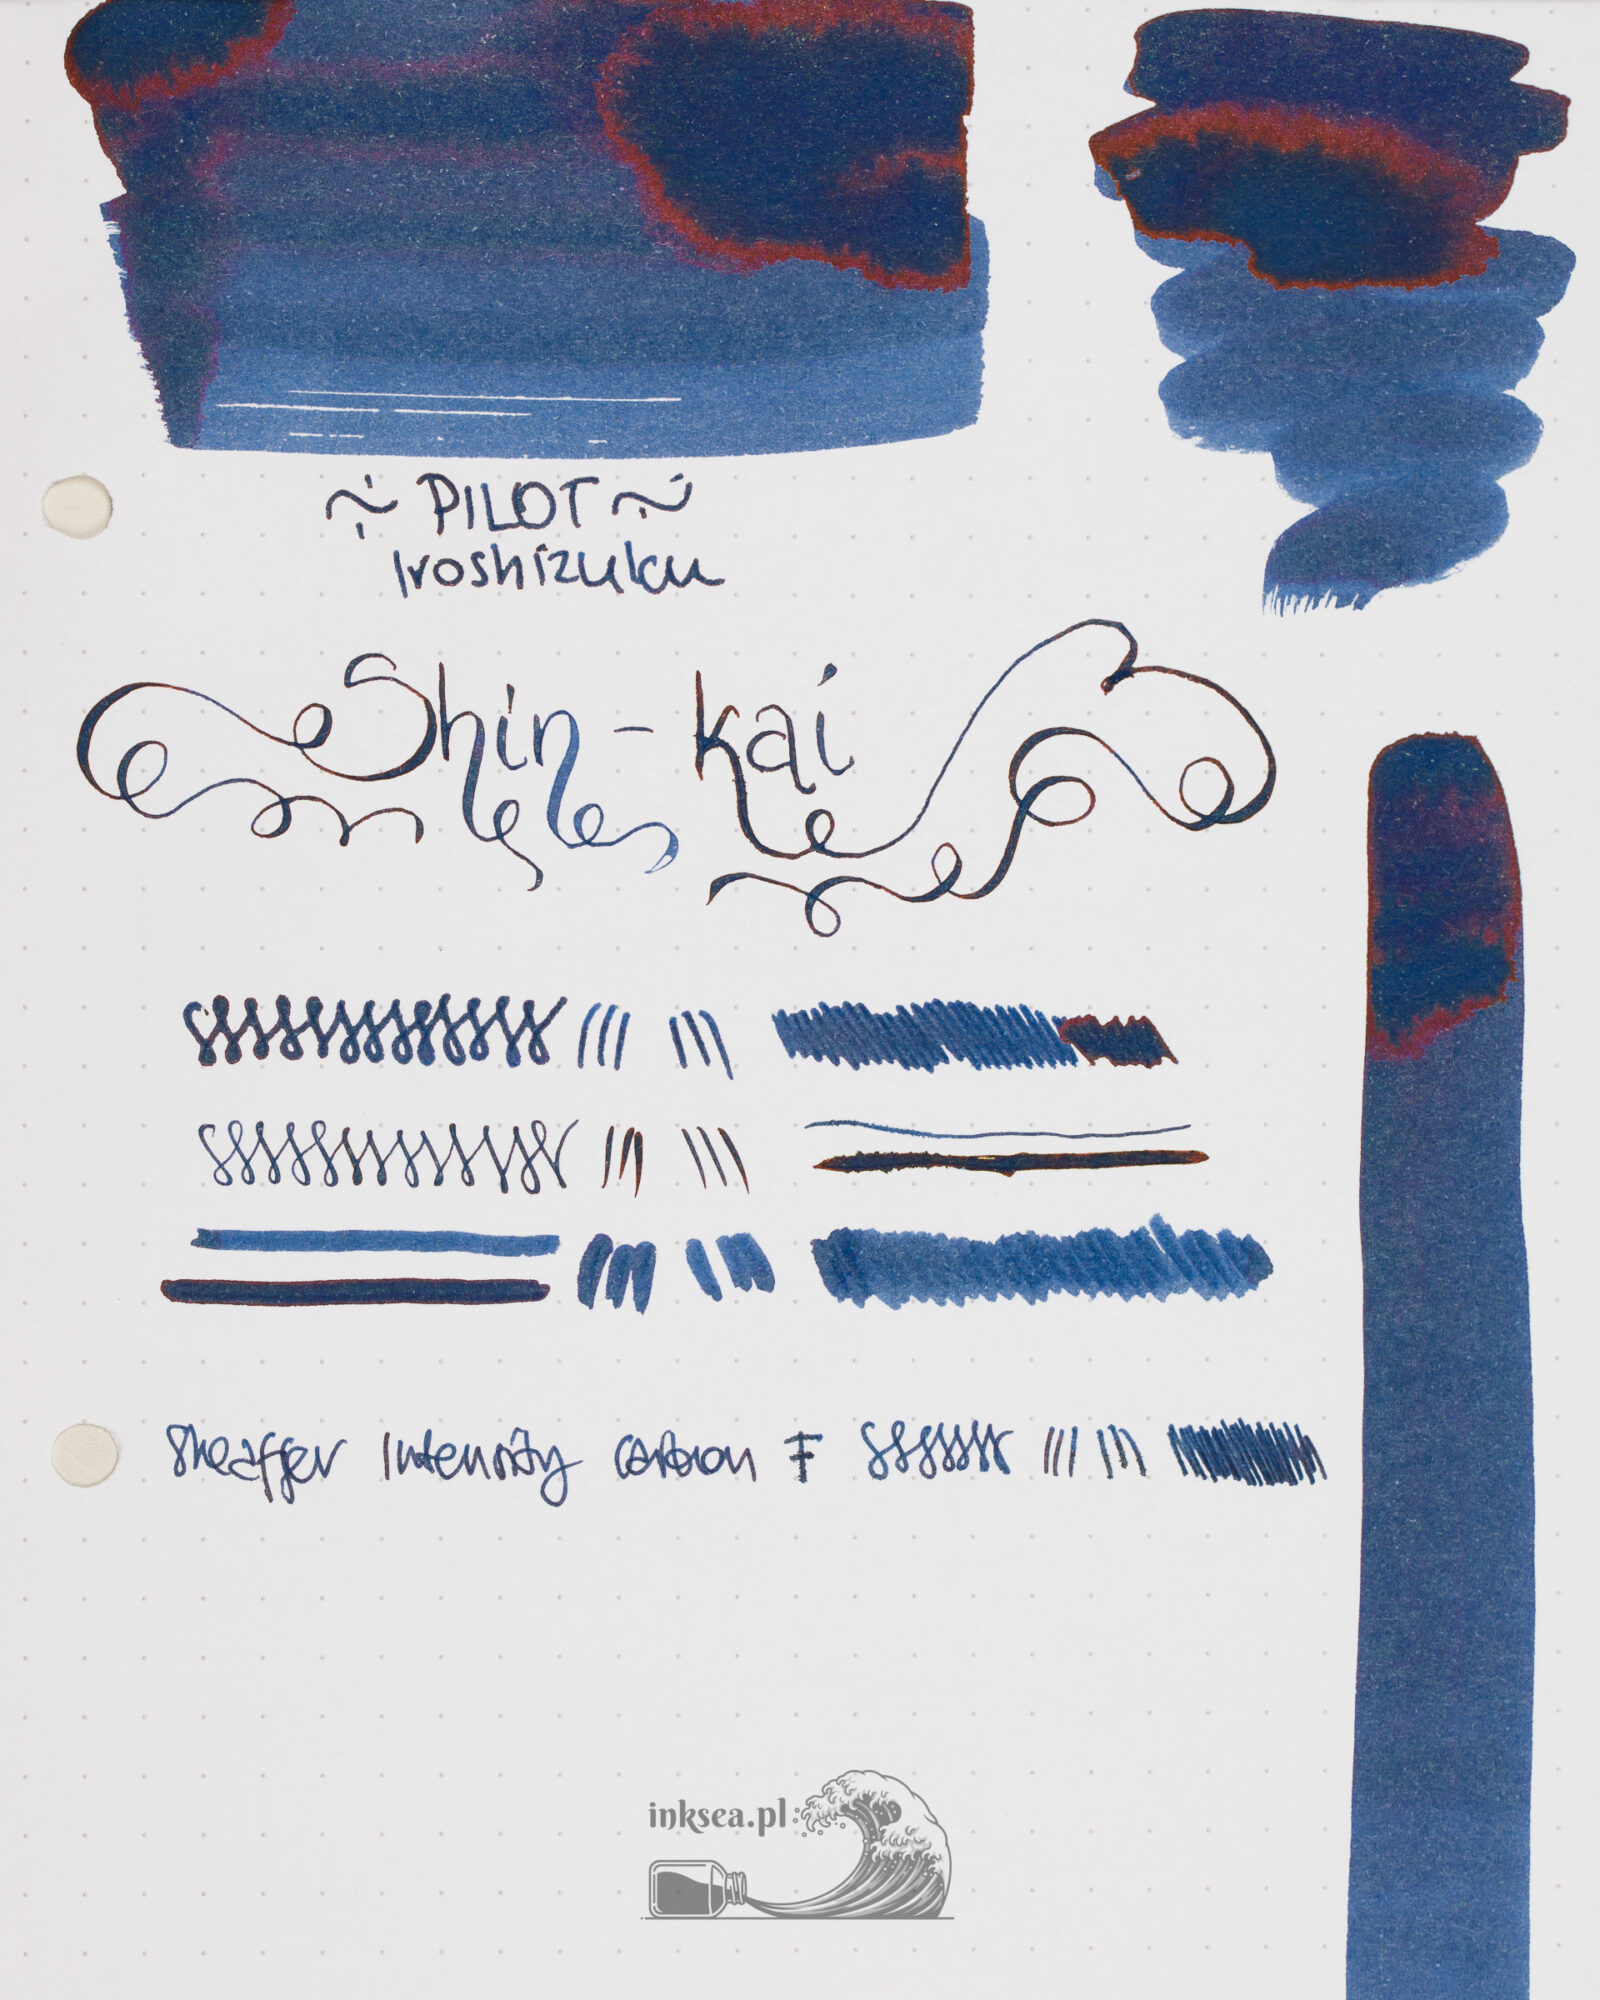 ~ PILOT ~
Iroshizuku
Shin-kai
Sheaffer Intensity carbon F
inksea.pl